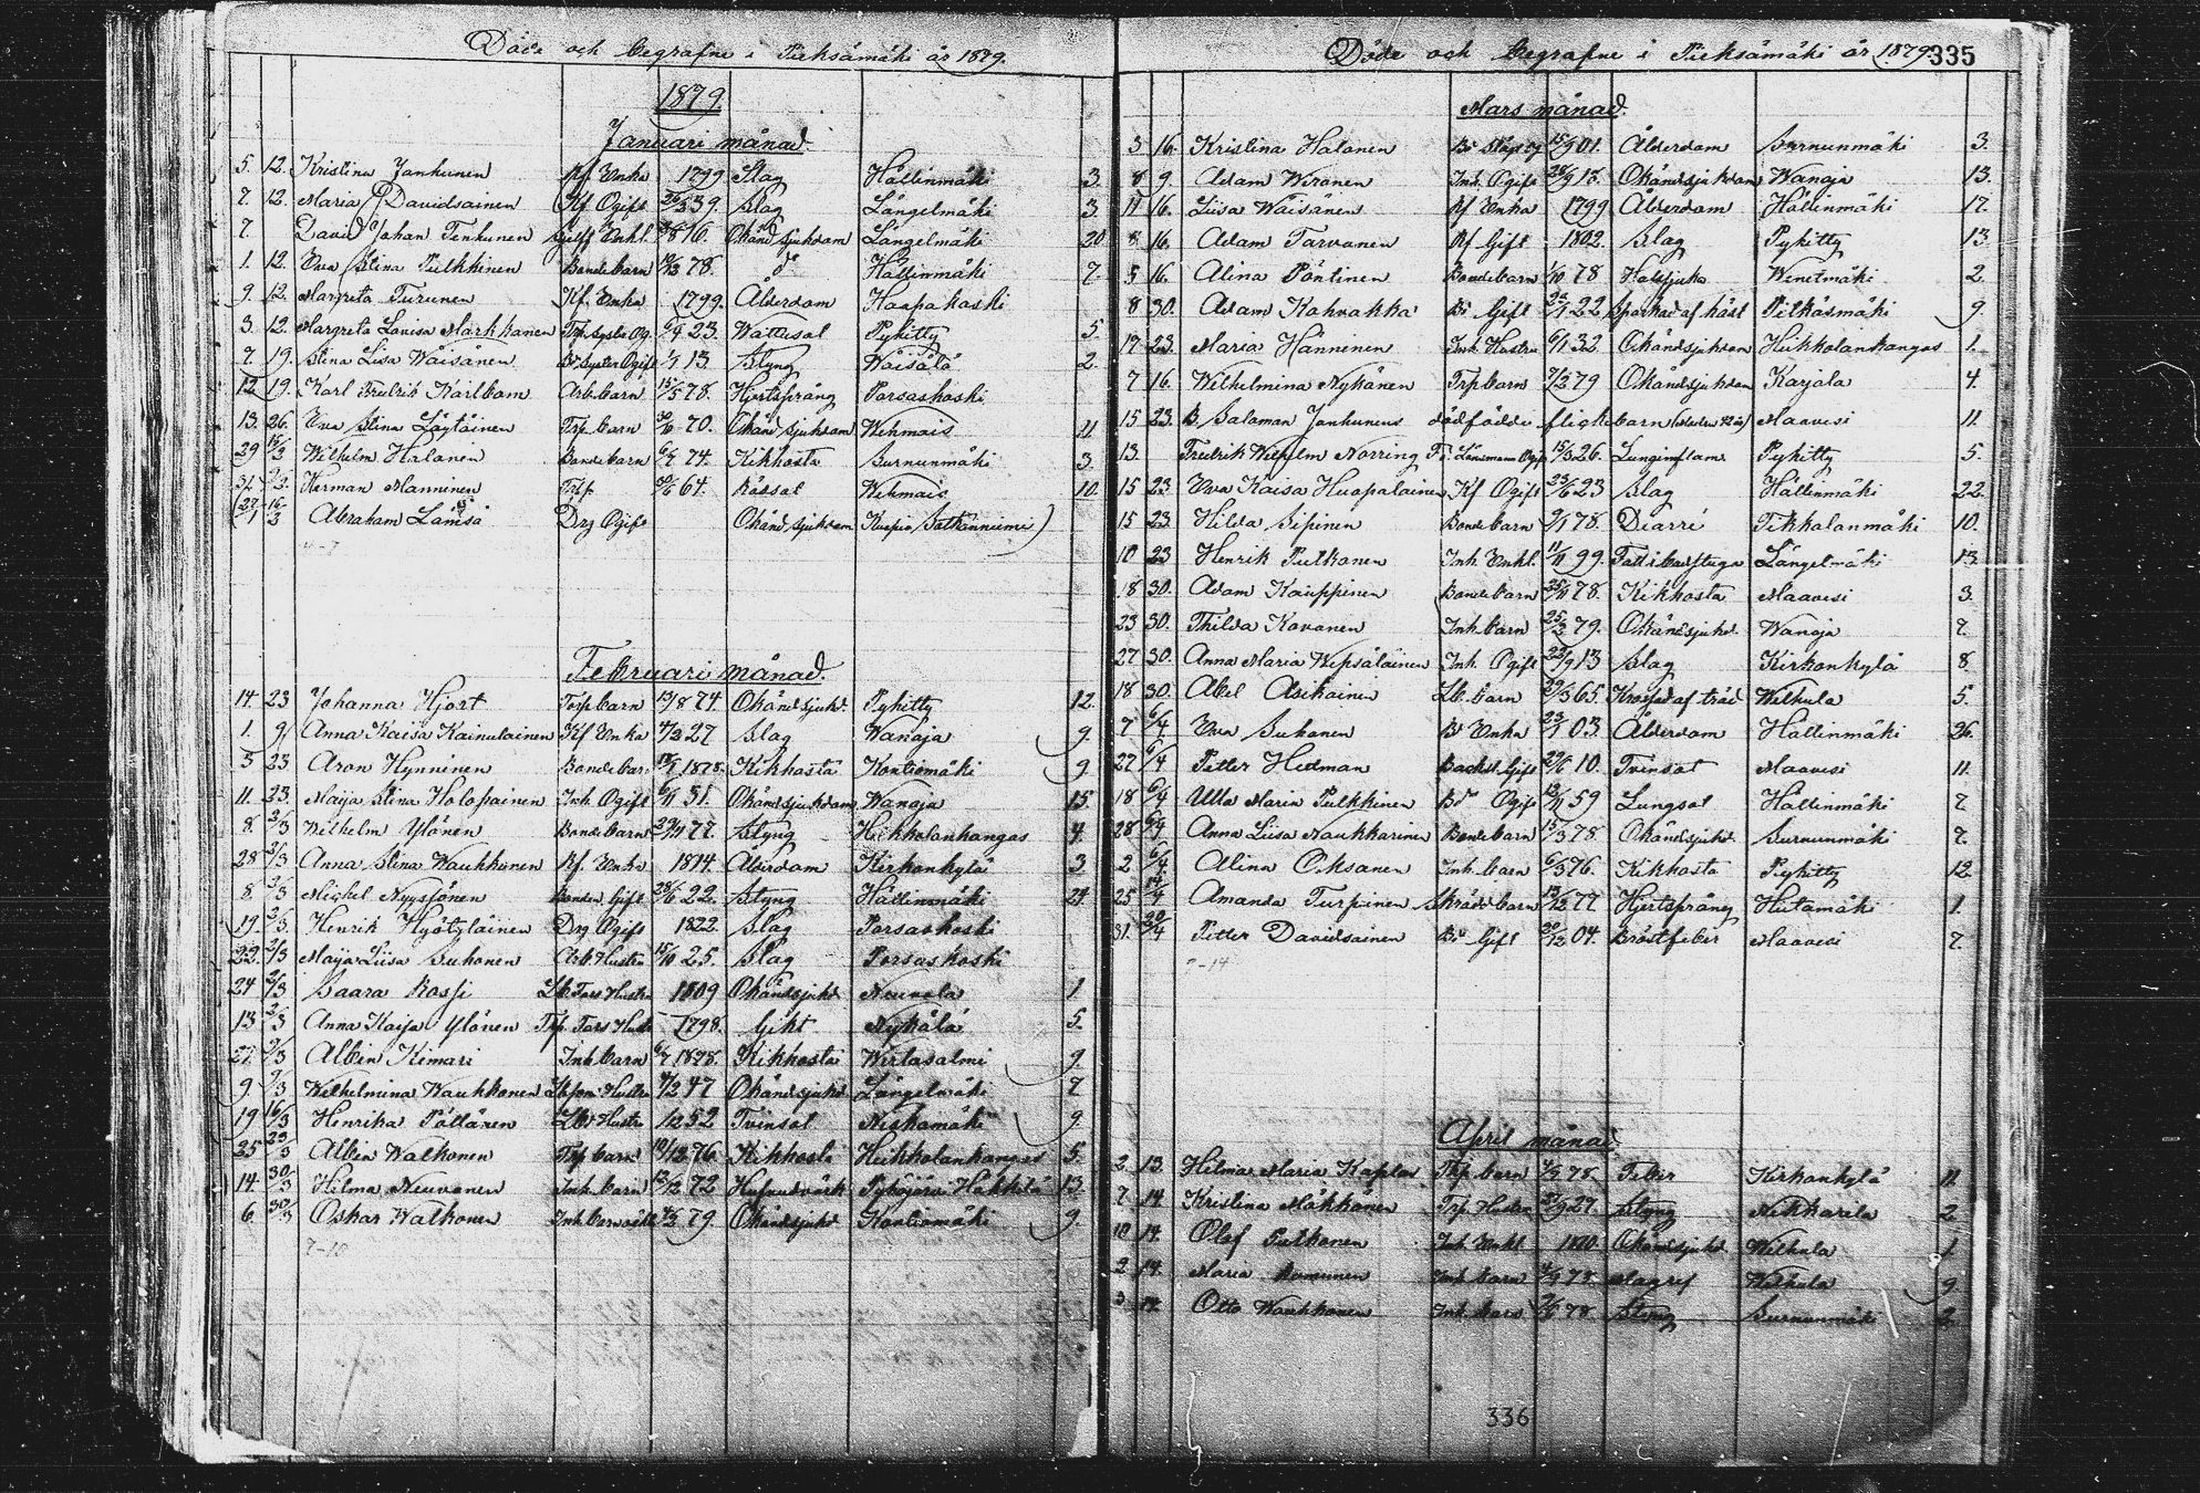 Döde och begrafne i Pieksämäki år 1879.
1879.
Januari månad.
5. 12. Kristina Janhunen Kf. Enka 1799 Slag Hällinmäki 3.
7. 12. Maria Davidsainen Kf Ogift 39. Slag Längelmäki 3.
7. David Johan Tenhunen Enkl. 16. Okänd sjukdom Längelmäki 20.
1. 12. Eva Stina Pulkkinen Bondebarn 78. do Hällinmäki 7.
9. 12. Margreta Turunen Kf. Enka 1799. Ålderdom Haapakoski
3. 12. Margreta Lovisa Markkanen Trp. Og. 23. Wattusot Pyhitty 5.
7. 19. Stina Lisa Wäisänen Ogift 13. Styng Wäisälä 2.
12. 19. Karl Fredrik Karlbom Arb. barn 15/5 78. Hjertsprång Porsaskoski
13. 26. Eva Stina Läytäinen Trp. barn 70. Okänd sjukdom Wehmais 11.
29 Wilhelm Halonen Bondebarn 74. Kikhosta Surnunmäki 3.
31. Herman Manninen Trp. 64. Rossot Wehmais 10.
Abraham Lämsä Drg Ogift Okänd sjukdom Kuopio
Februari månad.
14. 23 Johanna Hjort Torp barn 13/8 74. Okänd sjukd. Pyhitty 12.
1. 9 Anna Kaisa Kainulainen Kf Enka 27 Slag Wanaja 9.
3 23. Aron Hynninen Bondebarn 1878. Kikhosta Kontiomäki 9.
11. 23. Maija Stina Holopainen Inh. Ogift 31. Okänd sjukdom Wanaja 15.
8. 2/3 Wilhelm Ylönen Bondebarn 77. Styng Heikkolankangas 4.
28 2/3 Anna Stina Waukkonen Kf. Enka 1814. Ålderdom Kirkonkylä 3
8. 2/3 Mickel Nyyssönen Bonden Gift 22. Styng Hällinmäki 24.
19. 2/3 Henrik Hyötyläinen Drg Ogift 1822. Slag Porsaskoski
22. 2/3 Maija Liisa Suhonen Arb. Hustru 15/10 25. Slag Porsaskoski
24 Saara Rossi Hustru 1809 Okänd sjukd Neuvola 1
13 Anna Kaisa Ylönen Trp. Fars Hustr 1798. Gikt Nykälä 5.
27. 9/3 Albin Kimari Inh. barn 1878. Kikhosta Wirtasalmi 9.
9. 9/3 Wilhelmina Waukkonen Hustru 47 Okänd sjukd Längelmäki 7
19 16/3 Henrika Pöllänen Hustru 52 Tvinsot Niskamäki 9.
25 23/3 Albin Walkonen Trp barn 10/12 76. Kikhosta Heikkolankangas 5.
14. 30/3 Hilma Neuvonen Inh. barn 72 Hufvudvärk 13.
6. 30/3 Oskar Walkonen Inh. 79. Okänd sjukd Kontiomäki 9.
7-10
Döde och begrafne i Pieksämäki år 1879. 335
Mars månad.
3 16. Kristina Halonen 01. Ålderdom Surnunmäki 3.
8 9. Adam Wironen Inh. Ogift 18. Okänd sjukdom Wanaja 13.
11 16. Liisa Wäisänen Kf Enka 1799 Ålderdom Hällinmäki 17.
8 16. Adam Tarvanen Kf Gift 1802. Slag Pyhitty 13.
5 16. Alina Pöntinen Bondebarn 1/10 78 Halssjuka Wenetmäki 2.
8 30. Adam Kahvakka Bd Gift 22 Sparkad af häst Pitkäsmäki 9.
17 23. Maria Hänninen Inh. Hustru 6/1 32. Okänd sjukdom Heikkolankangas 1.
7 16. Wilhelmina Nykänen Trp barn 7/2 79 Okänd sjukdom Karjala 4.
15 23. B. Salomon Janhunens dödfödde flickebarn Maavesi 11.
13. Fredrik Wilhelm Norring Länsmann Ogift 26. Lunginflam. Pyhitty 5.
15 23. Eva Kaisa Huopalainen Kf Ogift 23 Slag Hällinmäki 22.
15 23. Hilda Sipinen Bondebarn 9/1 78. Diarré Tikkalanmäki 10.
10 23 Henrik Pulkonen Inh. Enkl. 99. Fall i badstuga Längelmäki 13.
18 30. Adam Kauppinen Bondebarn 78. Kikhosta Maavesi 3.
23 30. Thilda Kovanen Inh. barn 79. Okänd sjukd. Wanaja 7.
27 30. Anna Maria Wepsäläinen Inh. Ogift 13 Slag Kirkonkylä 8.
18 30. Abel Asikainen barn 65. Krossad af träd Wilhula 5.
7 6/4 Eva Suhonen Bd Enka 03. Ålderdom Hällinmäki 26.
27 6/4 Petter Hedman Backst. Gift 10. Tvinsot Maavesi 11.
18 6/4 Ulla Maria Pulkkinen Ogift 59 Lungsot Hällinmäki 7.
28 6/4 Anna Liisa Naukkarinen Bondebarn 78. Okänd sjukd. Surnunmäki 7.
2 6/4 Alina Oksanen Inh. barn 6/3 76. Kikhosta Pyhitty 12.
25 14/4 Amanda Turpeinen Skrädd. barn 13/12 77 Hjertsprång Hietamäki 1.
31. 20/4 Petter Davidsainen Bd Gift 04. Bröstfeber Maavesi 7.
7-14
April månad.
2 13. Hilma Maria Kaplas Trp. barn 78. Feber Kirkonkylä 11.
7. 14 Kristina Mäkkönen Trp. Hustru 27. Styng Nikkarila 2.
10 14. Olof Pulkonen Inh. Enkl 1800. Okänd sjukd. Wilhula 1.
2. 14. Maria Romunen Inh. barn 78. Magref Wilhula 9
3 14. Otto Waukkonen Inh. barn 78. Styng Surnunmäki 2
336